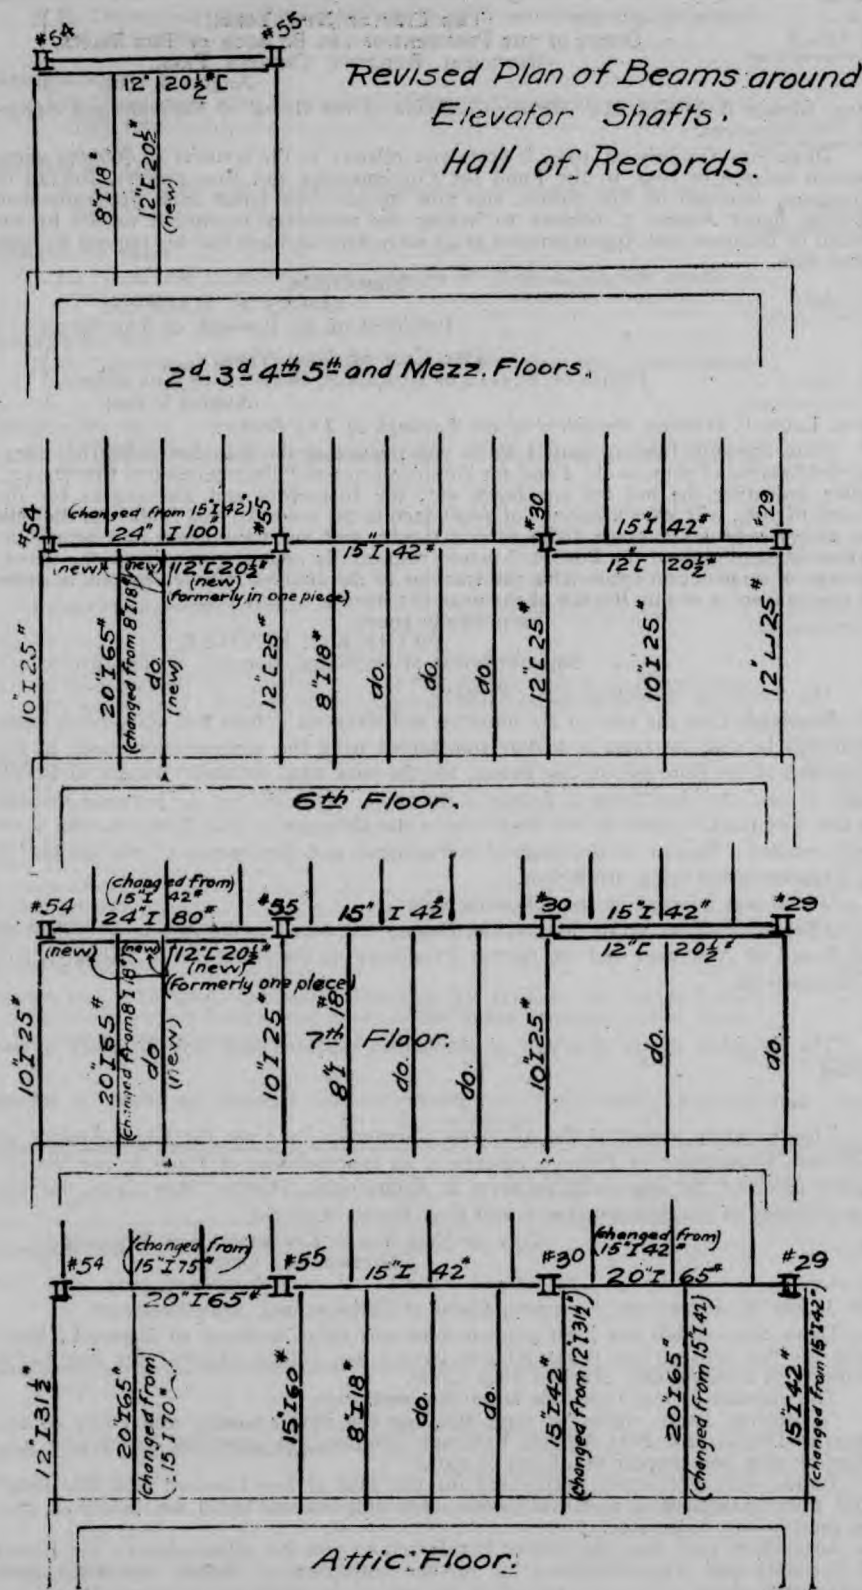 #54
#55
12" 20½# [
8" I 18#
12" [ 20½#
(new)
Revised Plan of Beams around
Elevator Shafts.
Hall of Records.
2d-3d 4th 5th and Mezz. Floors.
(changed from 15" I 42#)
#54
24" I 100#
#55
15" I 42#
#30
15" I 42#
#29
(new)
(new)
12" [ 20½#
(new)
(formerly in one piece)
12" [ 20½#
10" I 25#
20" I 65#
(changed from 8" I 18#)
do.
(new)
12" [ 25#
8" I 18#
do.
do.
do.
12" [ 25#
10" I 25#
12" [ 25#
6th Floor.
(changed from)
15" I 42#
#54
24" I 80#
#55
15" I 42#
#30
15" I 42#
#29
(new)
(new)
12" [ 20½#
(new)
(formerly one piece)
12" [ 20½#
10" I 25#
20" I 65#
(changed from 8" I 18#)
do
(new)
10" I 25#
8" I 18#
do.
do.
10" I 25#
do.
do.
7th Floor.
#54
(changed from)
15" I 75#
20" I 65#
#55
15" I 42#
#30
(changed from)
15" I 42#
20" I 65#
#29
12" I 31½#
20" I 65#
(changed from)
15" I 70#
15" I 60#
8" I 18#
do.
do.
15" I 42#
(changed from 12" I 31½#)
20" I 65#
(changed from 15" I 42)
15" I 42#
(changed from 15" I 42#)
Attic Floor.